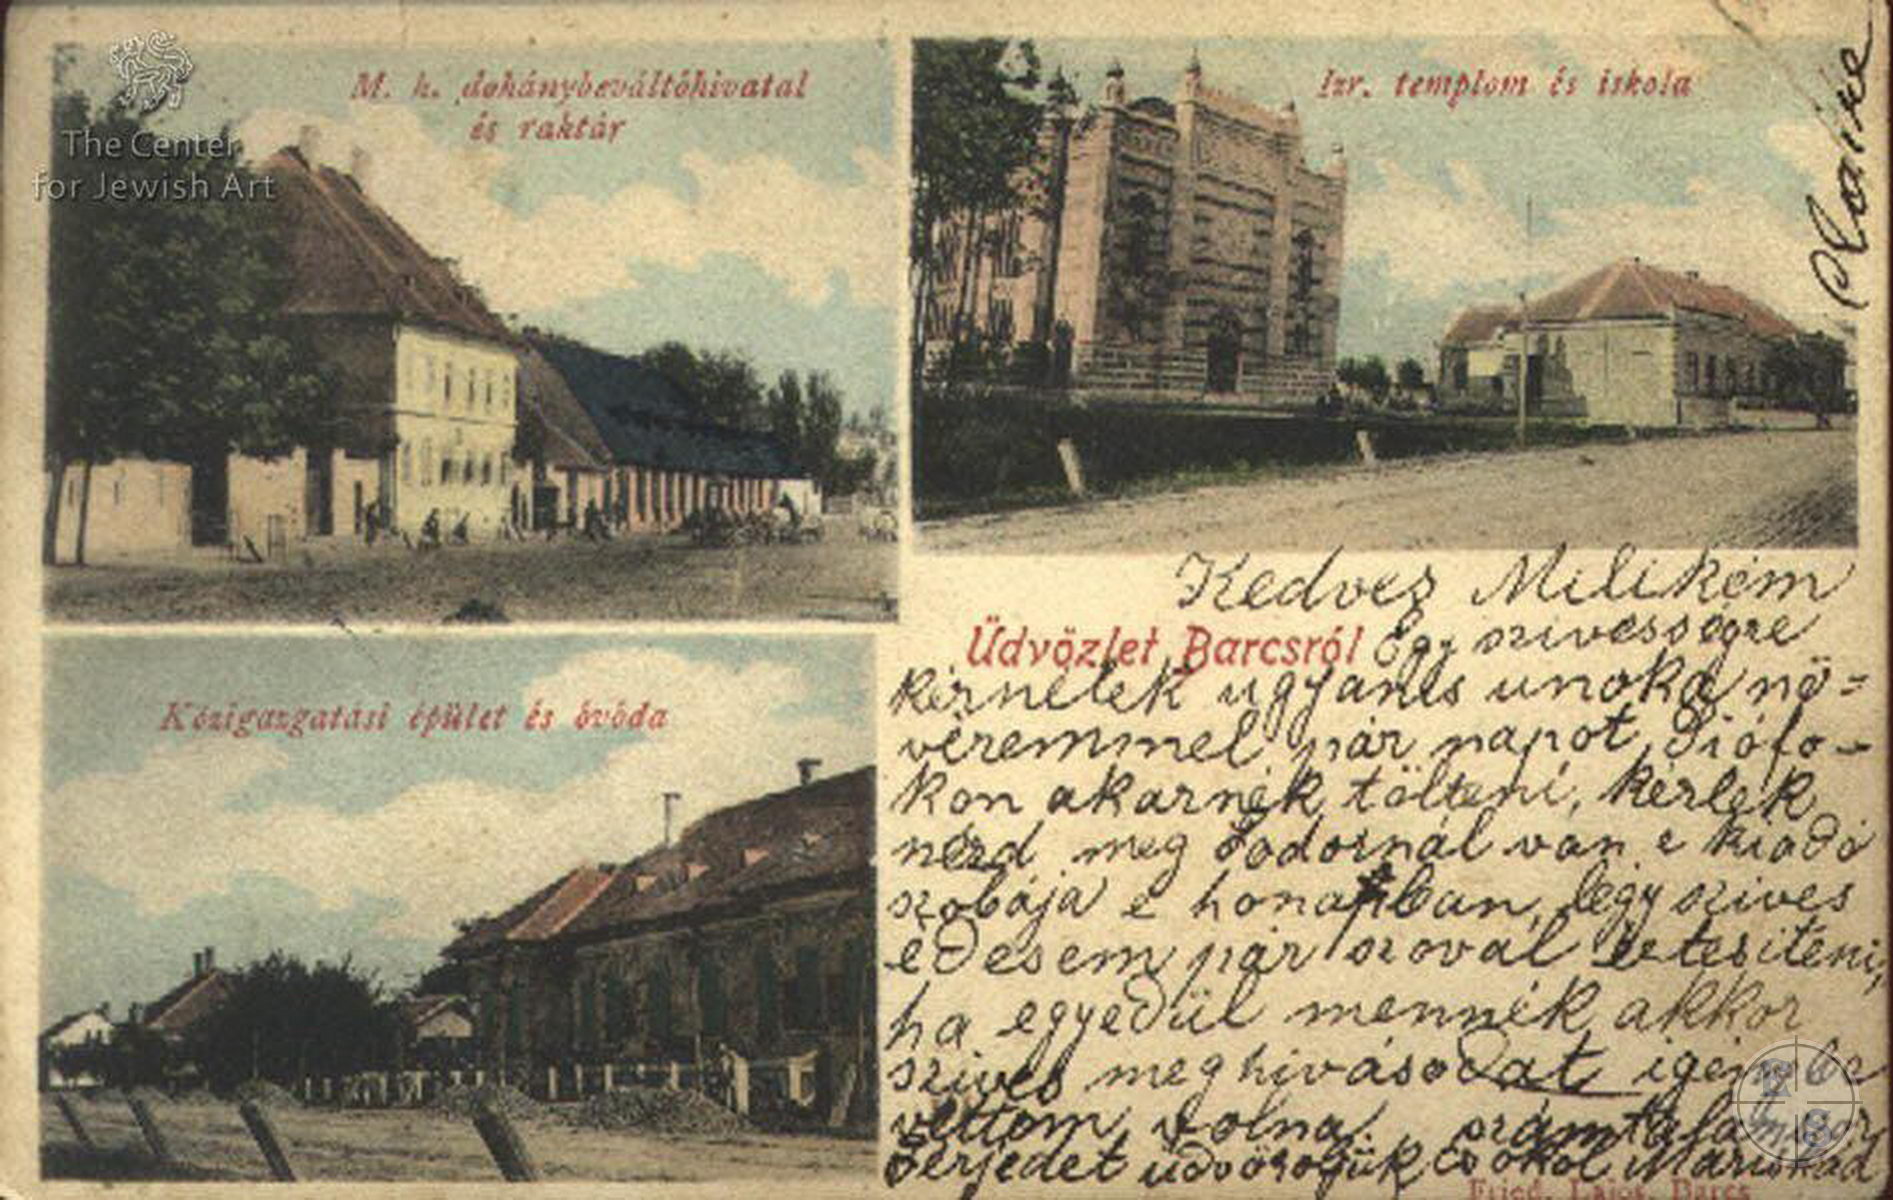 The Center
for Jewish Art
M. k. dohánybeváltóhivatal
és raktár
Izr. templom és iskola
Közigazgatási épület és óvóda
Üdvözlet Barcsról
Kedves Milikém
Egy szivességre
kérnélek ugyanis unoka nő=
véremmel pár napot Siófo-
kon akarnék tölteni, kérlek
nézd meg Fodornál van e kiadó
szobája e honapban, légy szives
édesem pár szoval értesiteni,
ha egyedül mennék akkor
szives meghivásodat igénybe
vettem volna,
férjedet üdvözöljük csokol Mariskád
Fried. Lajos, Barcs